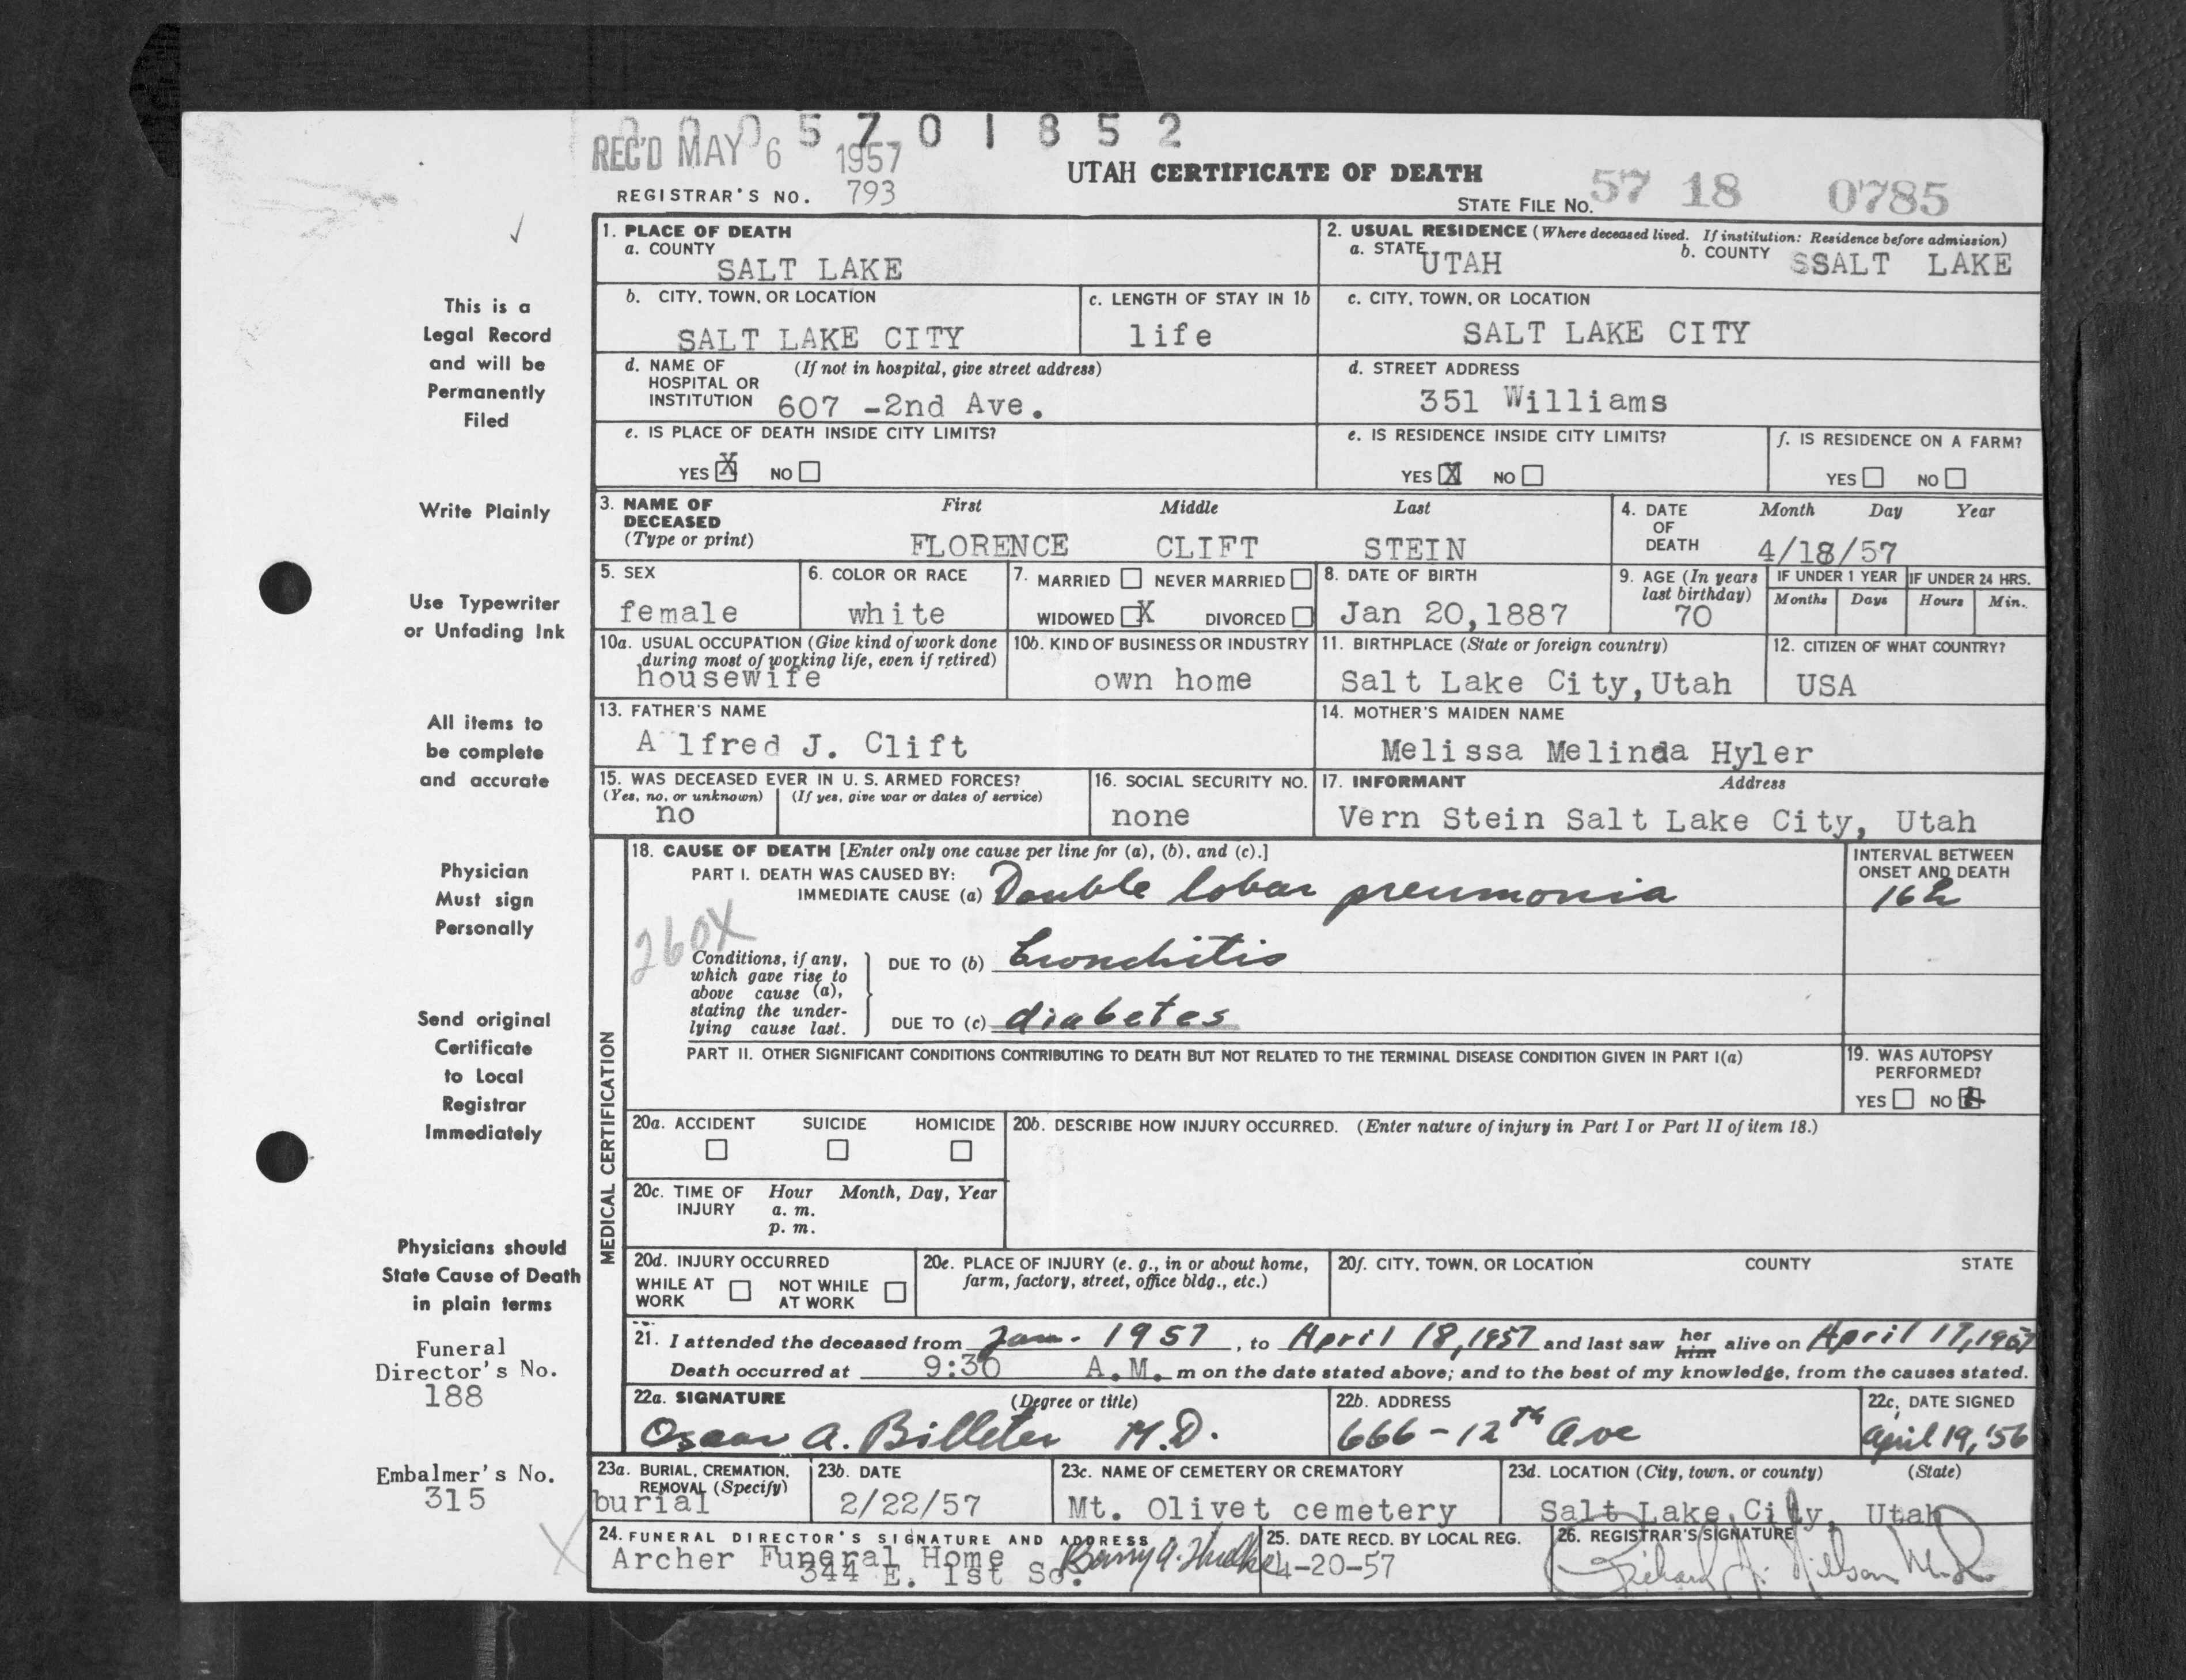 0 0 0 5 7 0 1 8 5 2
REC'D MAY 6 1957
UTAH CERTIFICATE OF DEATH
REGISTRAR'S NO. 793
STATE FILE NO. 57 18 0785
This is a
Legal Record
and will be
Permanently
Filed
Write Plainly
Use Typewriter
or Unfading Ink
All items to
be complete
and accurate
Physician
Must sign
Personally
Send original
Certificate
to Local
Registrar
Immediately
Physicians should
State Cause of Death
in plain terms
Funeral
Director's No.
188
Embalmer's No.
315
1. PLACE OF DEATH
a. COUNTY
SALT LAKE
2. USUAL RESIDENCE (Where deceased lived. If institution: Residence before admission)
a. STATE UTAH b. COUNTY SSALT LAKE
b. CITY, TOWN, OR LOCATION
SALT LAKE CITY
c. LENGTH OF STAY IN 1b
life
c. CITY, TOWN, OR LOCATION
SALT LAKE CITY
d. NAME OF (If not in hospital, give street address)
HOSPITAL OR
INSTITUTION 607 -2nd Ave.
d. STREET ADDRESS
351 Williams
e. IS PLACE OF DEATH INSIDE CITY LIMITS?
YES X NO
e. IS RESIDENCE INSIDE CITY LIMITS?
YES X NO
f. IS RESIDENCE ON A FARM?
YES NO
3. NAME OF First Middle Last
DECEASED
(Type or print) FLORENCE CLIFT STEIN
4. DATE Month Day Year
OF
DEATH 4/18/57
5. SEX
female
6. COLOR OR RACE
white
7. MARRIED NEVER MARRIED
WIDOWED X DIVORCED
8. DATE OF BIRTH
Jan 20,1887
9. AGE (In years
last birthday)
70
IF UNDER 1 YEAR
Months Days
IF UNDER 24 HRS.
Hours Min.
10a. USUAL OCCUPATION (Give kind of work done
during most of working life, even if retired)
housewife
10b. KIND OF BUSINESS OR INDUSTRY
own home
11. BIRTHPLACE (State or foreign country)
Salt Lake City,Utah
12. CITIZEN OF WHAT COUNTRY?
USA
13. FATHER'S NAME
A lfred J. Clift
14. MOTHER'S MAIDEN NAME
Melissa Melinda Hyler
15. WAS DECEASED EVER IN U. S. ARMED FORCES?
(Yes, no, or unknown) (If yes, give war or dates of service)
no
16. SOCIAL SECURITY NO.
none
17. INFORMANT Address
Vern Stein Salt Lake City, Utah
MEDICAL CERTIFICATION
18. CAUSE OF DEATH [Enter only one cause per line for (a), (b), and (c).]
PART I. DEATH WAS CAUSED BY:
IMMEDIATE CAUSE (a) Double lobar pneumonia
INTERVAL BETWEEN
ONSET AND DEATH
16 h
260X
Conditions, if any,
which gave rise to
above cause (a),
stating the under-
lying cause last.
DUE TO (b) bronchitis
DUE TO (c) diabetes
PART II. OTHER SIGNIFICANT CONDITIONS CONTRIBUTING TO DEATH BUT NOT RELATED TO THE TERMINAL DISEASE CONDITION GIVEN IN PART I(a)
19. WAS AUTOPSY
PERFORMED?
YES NO
20a. ACCIDENT SUICIDE HOMICIDE
20b. DESCRIBE HOW INJURY OCCURRED. (Enter nature of injury in Part I or Part II of item 18.)
20c. TIME OF Hour Month, Day, Year
INJURY a. m.
p. m.
20d. INJURY OCCURRED
WHILE AT NOT WHILE
WORK AT WORK
20e. PLACE OF INJURY (e. g., in or about home,
farm, factory, street, office bldg., etc.)
20f. CITY, TOWN, OR LOCATION COUNTY STATE
21. I attended the deceased from Jan. 1957, to April 18, 1957 and last saw her him alive on April 17, 1957
Death occurred at 9:30 A.M. m on the date stated above; and to the best of my knowledge, from the causes stated.
22a. SIGNATURE (Degree or title)
Oscar A. Billeter M.D.
22b. ADDRESS
666 - 12th Ave
22c. DATE SIGNED
April 19, '56
23a. BURIAL, CREMATION,
REMOVAL (Specify)
burial
23b. DATE
2/22/57
23c. NAME OF CEMETERY OR CREMATORY
Mt. Olivet cemetery
23d. LOCATION (City, town, or county) (State)
Salt Lake City, Utah
24. FUNERAL DIRECTOR'S SIGNATURE AND ADDRESS
Archer Funeral Home
344 E. 1st So.
25. DATE RECD. BY LOCAL REG.
4-20-57
26. REGISTRAR'S SIGNATURE
Richard A. Nilson M.D.